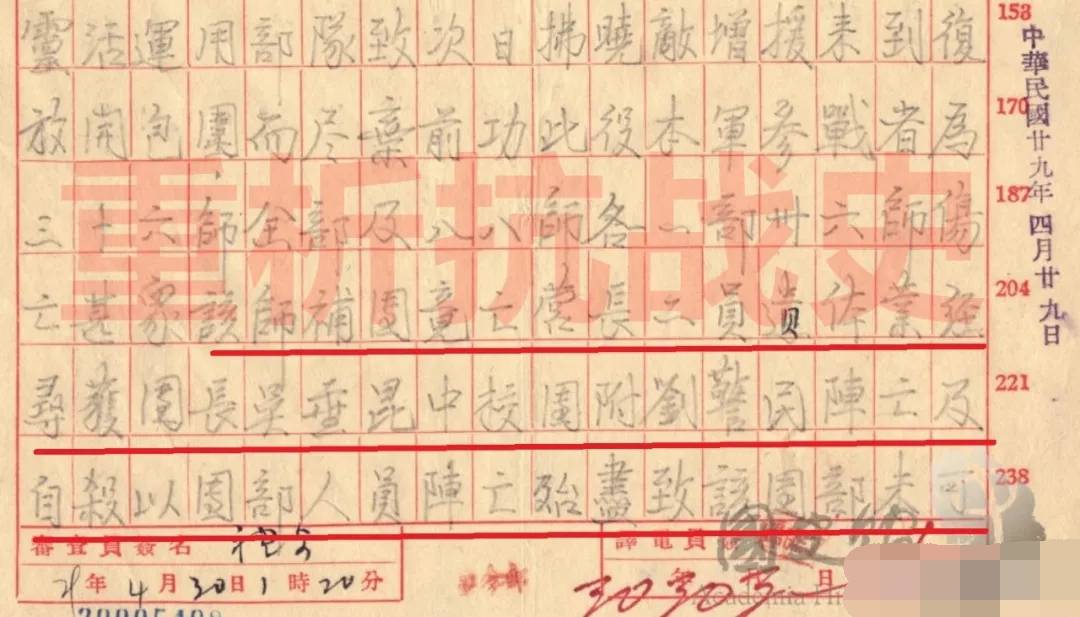 靈活運用部隊致次日拂曉敵增援来到復
153
放開包圍而尽棄前功此役本軍參戰者為
170
三十六師全部及八八師各一部卅六師傷
187
亡甚眾該師補團竟亡營長二員遺体業經
204
尋獲團長吳垂昆中校團附劉警民陣亡及
221
自殺以團部人員陣亡殆盡致該團部未可
238
中華民國廿九年四月廿九日
重析抗战史
審查員簽名
年4月30日1時20分
譯電員
國史館
Academia